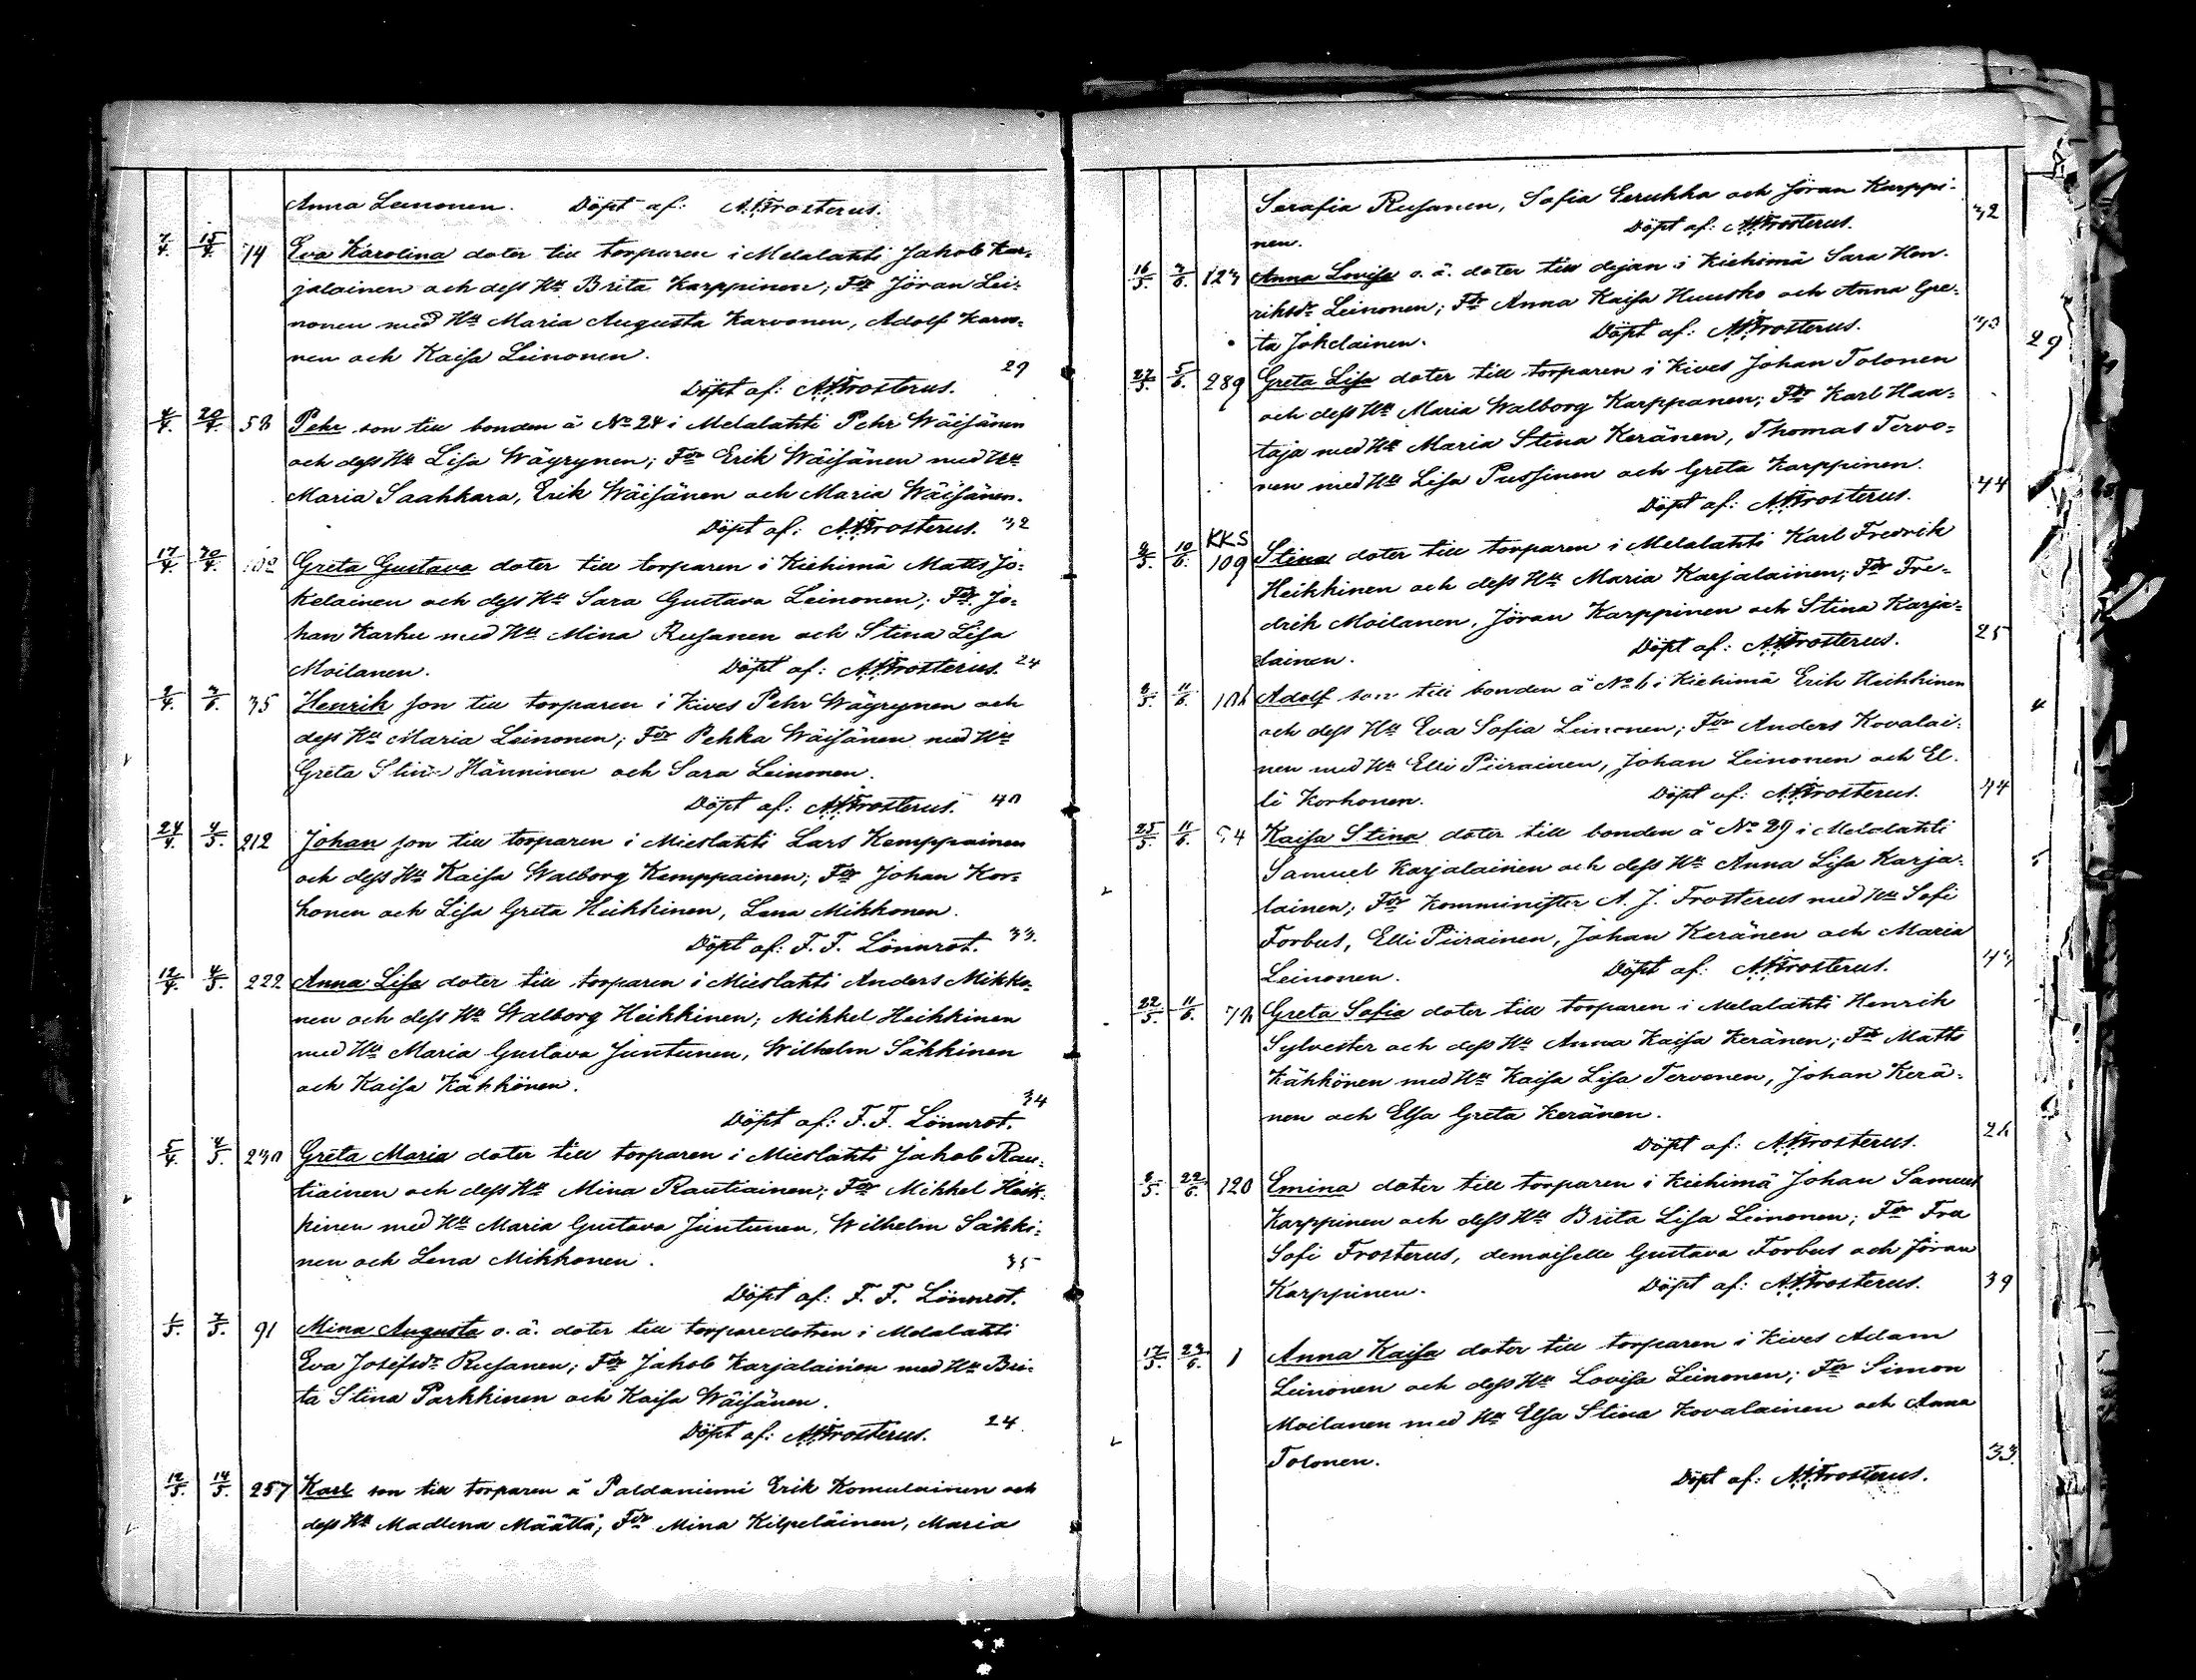 Anna Leinonen. Döpt af: A.J.Frosterus.
7/4. 15/4. 74 Eva Karolina doter till torparen i Melalahti Jakob Kar-
jalainen och dess Hu Brita Karppinen; Fdr Jöran Lei-
nonen med Hu Maria Augusta Karvonen, Adolf Karvo-
nen och Kaisa Leinonen.
29
Döpt af: A.J.Frosterus.
4/4. 20/4. 58 Pehr son till bonden å No 24 i Melalahti Pehr Wäisänen
och dess Hu Lisa Wäyrynen; Fdr Erik Wäisänen med Hu
Maria Saahkara, Erik Wäisänen och Maria Wäisänen.
Döpt af: A.J.Frosterus. 32
17/4. 30/4. Greta Gustava doter till torparen i Kiehimä Matts Jo-
kelainen och dess Hu Sara Gustava Leinonen; Fdr Jo-
han Karhu med Hu Mina Rusanen och Stina Lisa
Moilanen. Döpt af: A.J.Frosterus. 24
35 Henrik son till torparen i Kives Pehr Wäyrynen och
dess Hu Maria Leinonen; Fdr Pekka Wäisänen med Hu
Greta Stina Hänninen och Sara Leinonen.
Döpt af: A.J.Frosterus. 40
24/4. 4/5. 212 Johan son till torparen i Mieslahti Lars Kemppainen
och dess Hu Kaisa Walborg Kemppainen; Fdr Johan Kor-
honen och Lisa Greta Heikkinen, Lena Mikkonen.
Döpt af: F. F. Lönnrot. 33.
12/4. 4/5. 222 Anna Lisa doter till torparen i Mieslahti Anders Mikko-
nen och dess Hu Walborg Heikkinen; Mikkel Heikkinen
med Hu Maria Gustava Juntunen, Wilhelm Säkkinen
och Kaisa Kähkönen.
34
Döpt af: F. F. Lönnrot.
5/4. 4/5. 230 Greta Maria doter till torparen i Mieslahti Jakob Rau-
tiainen och dess Hu Mina Rautiainen; Fdr Mikkel Heik-
kinen med Hu Maria Gustava Juntunen, Wilhelm Säkki-
nen och Lena Mikkonen. 35
Döpt af: F. F. Lönnrot.
1/5. 7/5. 91 Mina Augusta o. ä. doter till torparedotren i Melalahti
Eva Josefsdr Rusanen; Fdr Jakob Karjalainen med Hu Bri-
ta Stina Parkkinen och Kaisa Wäisänen.
Döpt af: A.J.Frosterus. 24.
12/5. 14/5. 257 Karl son till torparen å Paldaniemi Erik Komulainen och
dess Hu Madlena Määttä; Fdr Mina Kilpeläinen, Maria
Serafia Rusanen, Sofia Eerukka och Jöran Karppi-
nen. Döpt af: A.J.Frosterus. 32
16/5. 3/6. 123 Anna Lovisa o. ä. doter till dejan i Kiehimä Sara Hen-
riksdr Leinonen; Fdr Anna Kaisa Huusko och Anna Gre-
ta Jokelainen. Döpt af: A.J.Frosterus. 33
29
27/5. 5/6. 289 Greta Lisa doter till torparen i Kives Johan Tolonen
och dess Hu Maria Walborg Karppanen; Fdr Karl Haa-
taja med Hu Maria Stina Keränen, Thomas Tervo-
nen med Hu Lisa Pussinen och Greta Karppinen.
Döpt af: A.J.Frosterus. 44
KKS
9/5. 10/6. 109 Stina doter till torparen i Melalahti Karl Fredrik
Heikkinen och dess Hu Maria Karjalainen; Fdr Fre-
drik Moilanen, Jöran Karppinen och Stina Karja-
lainen. Döpt af: A.J.Frosterus. 25
11/6. Adolf son till bonden å No 6 i Kiehimä Erik Heikkinen
och dess Hu Eva Sofia Leinonen; Fdr Anders Kovalai-
nen med Hu Elli Piirainen, Johan Leinonen och El-
li Korhonen. Döpt af: A.J.Frosterus. 44
25/5. 11/6. Kaisa Stina doter till bonden å No 29 i Melalahti
Samuel Karjalainen och dess Hu Anna Lisa Karja-
lainen; Fdr Komminister A. J. Frosterus med Hu Sofi
Forbus, Elli Piirainen, Johan Keränen och Maria
Leinonen. Döpt af: A.J.Frosterus. 43
22/5. 11/6. Greta Sofia doter till torparen i Melalahti Henrik
Sylvester och dess Hu Anna Kaisa Keränen; Fdr Matts
Kähkönen med Hu Kaisa Lisa Tervonen, Johan Kerä-
nen och Elsa Greta Keränen.
Döpt af: A.J.Frosterus. 26
22/6. 120 Emina doter till torparen i Kiehimä Johan Samuel
Karppinen och dess Hu Brita Lisa Leinonen; Fdr Fru
Sofi Frosterus, demoiselle Gustava Forbus och Jöran
Karppinen. Döpt af: A.J.Frosterus. 39
17/5. 23/6. 1 Anna Kaisa doter till torparen i Kives Adam
Leinonen och dess Hu Lovisa Leinonen; Fdr Simon
Moilanen med Hu Elsa Stina Kovalainen och Anna
Tolonen. 33
Döpt af: A.J.Frosterus.